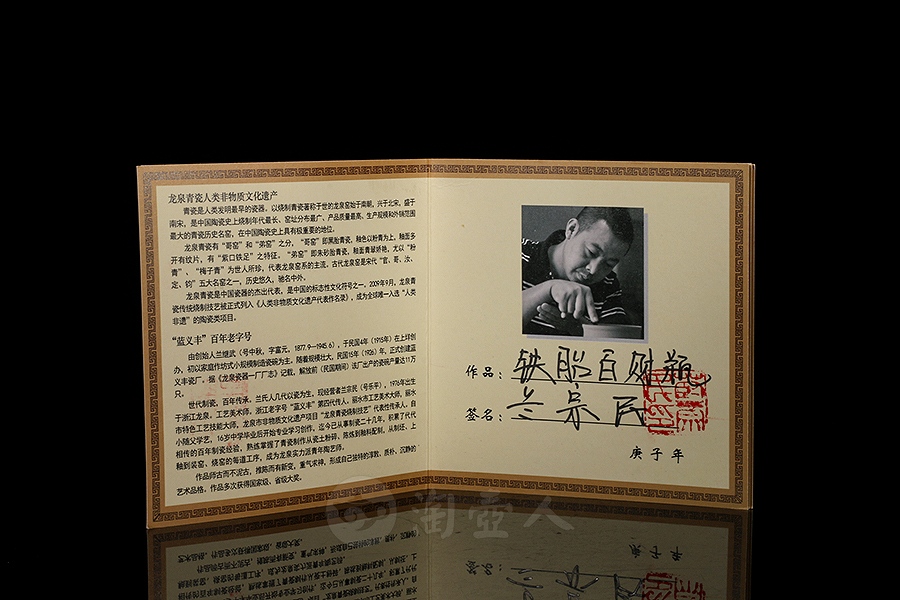 龙泉青瓷人类非物质文化遗产
青瓷是人类发明最早的瓷器，以烧制青瓷著称于世的龙泉窑始于南朝，兴于北宋，盛于
南宋，是中国陶瓷史上烧制年代最长、窑址分布最广、产品质量最高、生产规模和外销范围
最大的青瓷历史名窑，在中国陶瓷史上具有极重要的地位。
龙泉青瓷有“哥窑”和“弟窑”之分，“哥窑”即黑胎青瓷，釉色以粉青为上，釉面多
开有纹片，有“紫口铁足”之特征。“弟窑”即朱砂胎青瓷，釉面青翠娇艳，尤以“粉
青”、“梅子青”为世人所珍，代表龙泉窑系的主流。古代龙泉窑是宋代“官、哥、汝、
定、钧”五大名窑之一，历史悠久，驰名中外。
龙泉青瓷是中国瓷器的杰出代表，是中国的标志性文化符号之一，2009年9月，龙泉青
瓷传统烧制技艺被正式列入《人类非物质文化遗产代表作名录》，成为全球唯一入选“人类
非遗”的陶瓷类项目。
“蓝义丰”百年老字号
由创始人兰继武（号中秋，字富元，1877.9—1945.6），于民国4年（1915年）在上垟创
办，初以家庭作坊式小规模制造瓷碗为主，随着规模壮大，民国15年（1926）年，正式创建蓝
义丰瓷厂。据《龙泉瓷器一厂厂志》记载，解放前（民国期间）该厂出产的瓷碗产量达11万
只。
世代制瓷，百年传承，兰氏人几代以瓷为生，现经营者兰宗民（号乐平），1976年出生
于浙江龙泉，工艺美术师，浙江老字号“蓝义丰”第四代传人，丽水市工艺美术大师，丽水
市特色工艺技能大师，龙泉市非物质文化遗产项目“龙泉青瓷烧制技艺”代表性传承人，自
小随父学艺，16岁中学毕业后开始专业学习创作，迄今已从事制瓷二十几年，积累了代代
相传的百年制瓷经验，熟练掌握了青瓷制作从瓷土粉碎、陈炼到釉料配制，从制坯、上
釉到装窑、烧窑的每道工序，成为龙泉实力派青年陶艺师。
作品师古而不泥古，推陈而有新变，重气求神，形成自己独特的淳致、质朴、沉静的
艺术品格，作品多次获得国家级、省级大奖。
作品：铁胎百财瓶
签名：兰宗民
庚子年
壶人